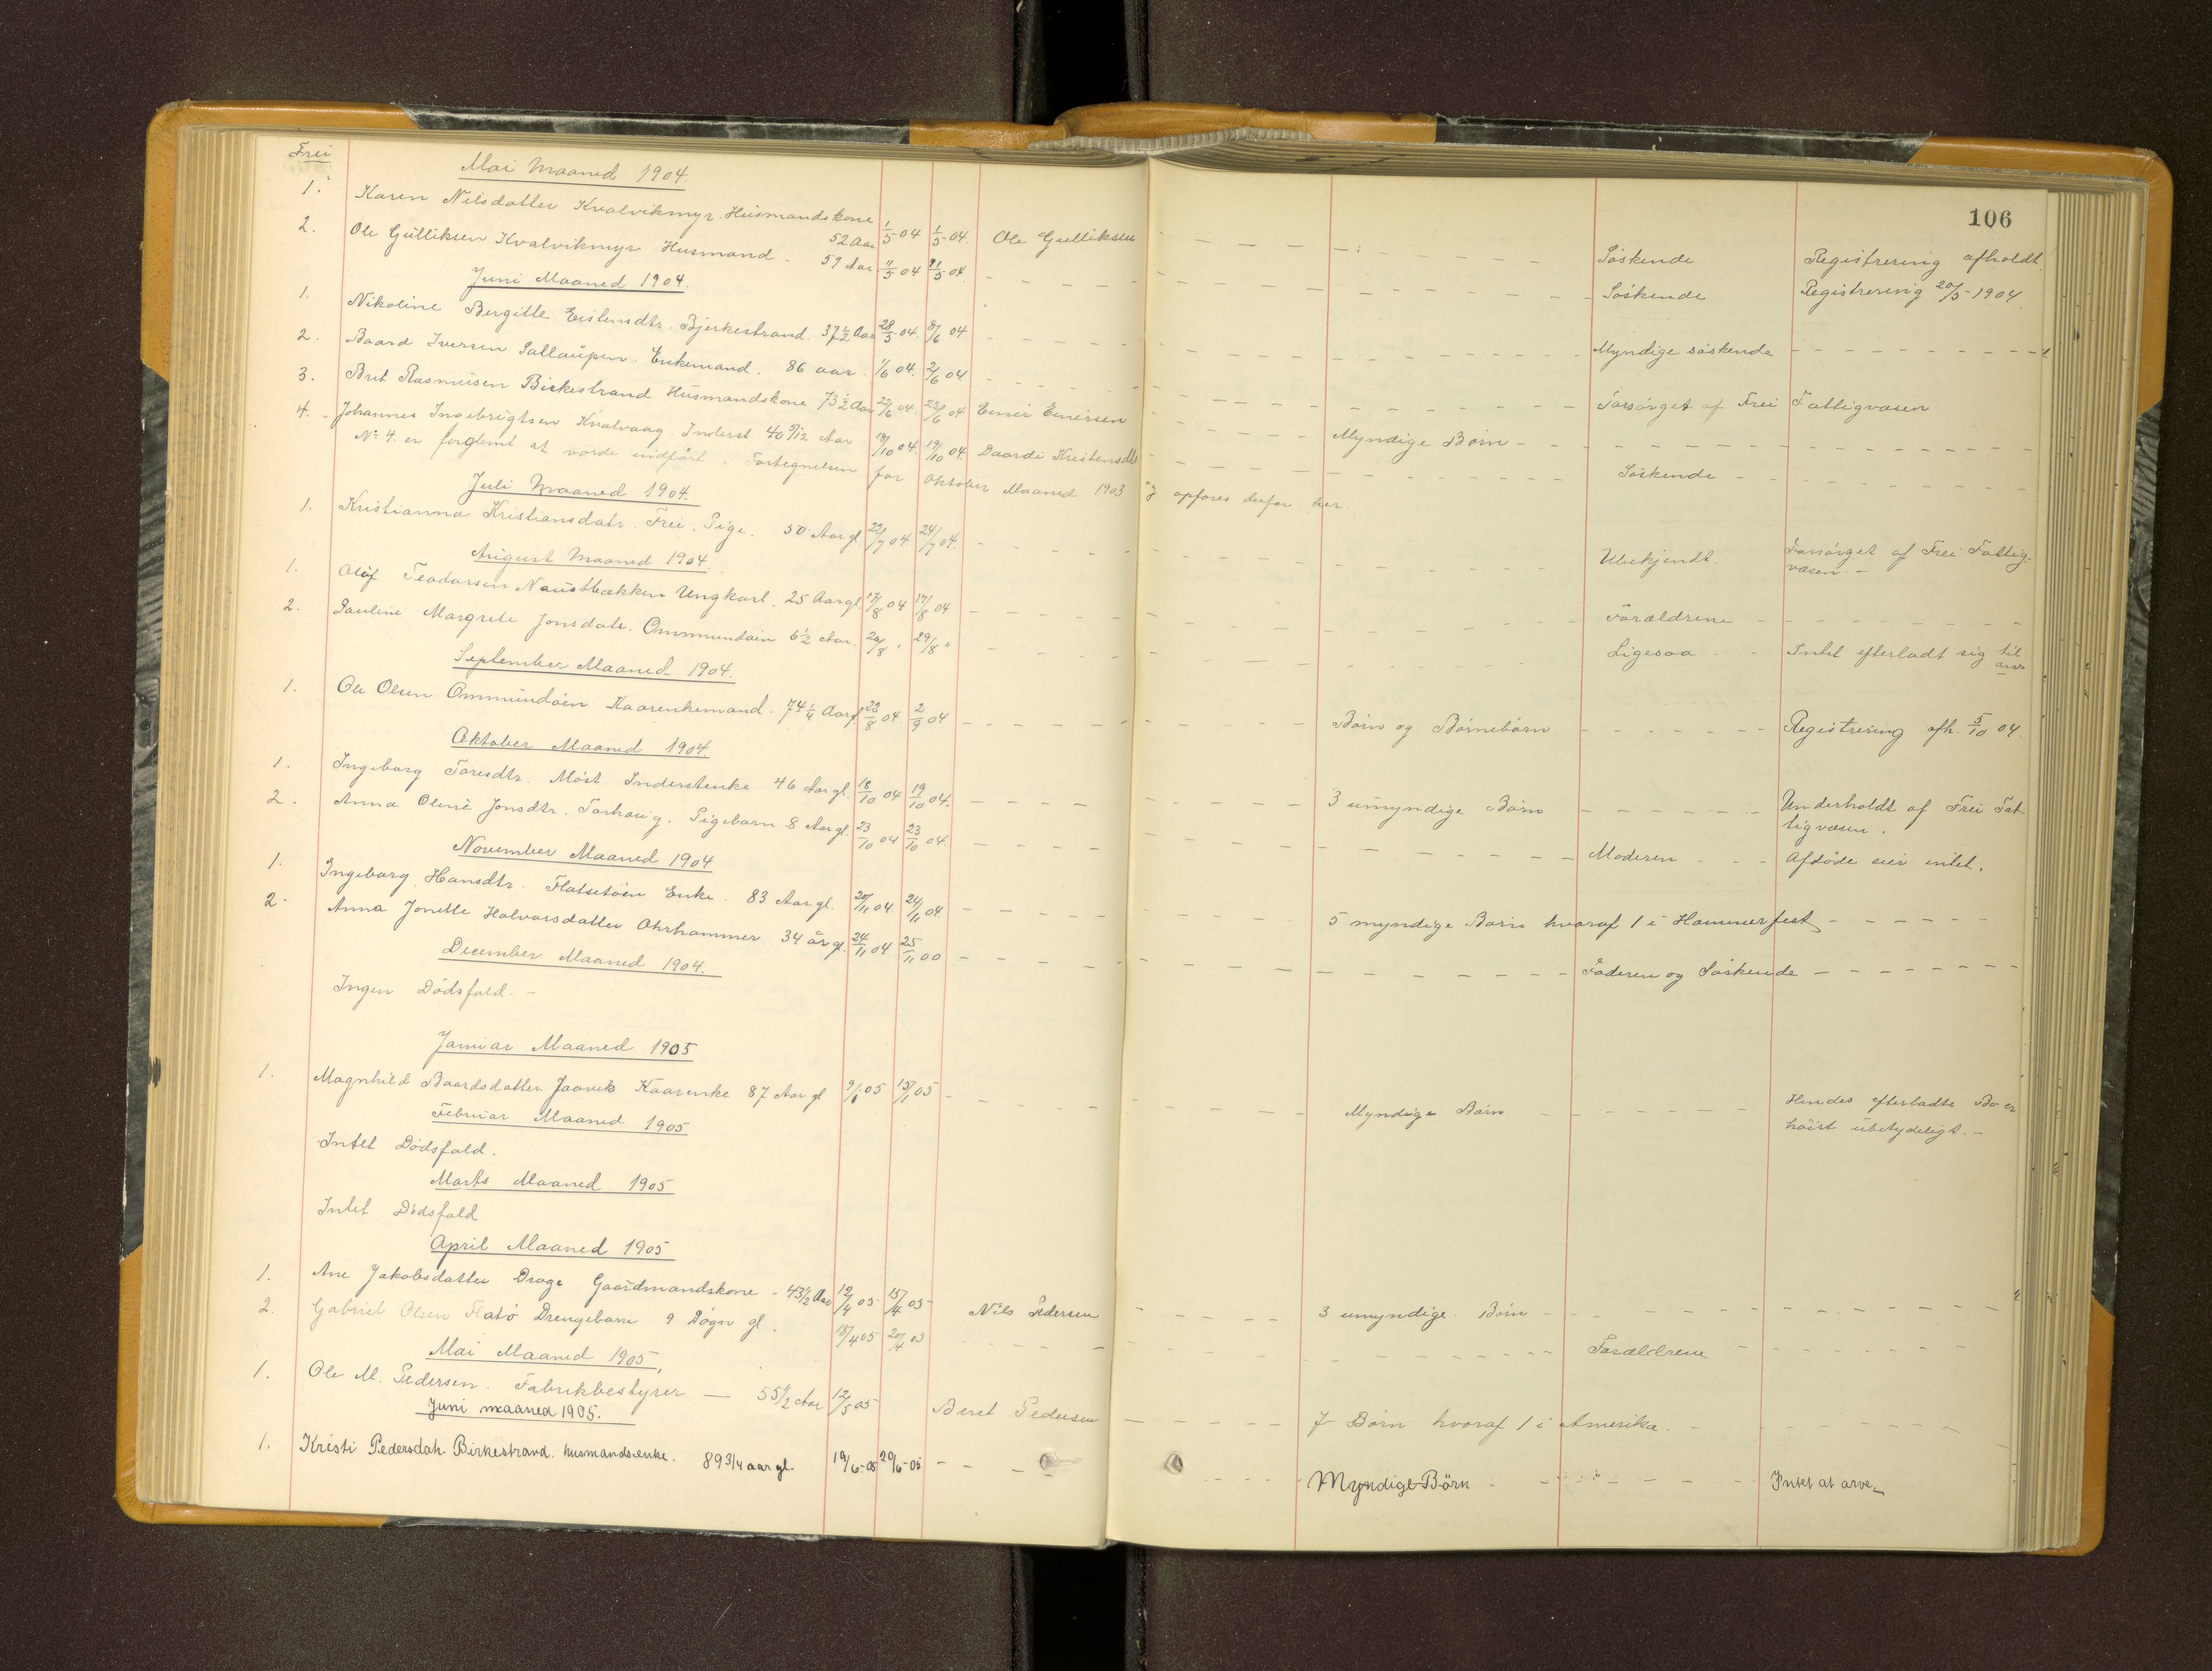 106
Frei
Mai Maaned 1904.
1. Karen Nilsdatter Kvalvikmyr. Husmandskone 52 Aar 1/5 04 1/5 04. Ole Gulliksen - - - Söskende Registrering afholdt.
2. Ole Gulliksen Kvalvikmyr Husmand - 59 Aar 11/5 04 21/5 04 - - - Söskende Registrering 20/5-1904.
Juni Maaned 1904.
1. Nikoline Bergitte Eistensdtr. Bjerkestrand. 37 1/2 Aar 28/5 04. 8/6 04 - - - Myndige söskende - - -
2. Baard Iversen Sallaupen. Enkemand. 86 aar. 1/6 04. 2/6 04 - - - Forsörget af Frei Fattigvæsen
3. Brit Rasmusen Birkestrand Husmandskone 73 1/2 Aar 22/6 04. 23/6 04 Einir Einirsen - - Myndige Börn - - -
4. Johannes Ingebrigtsen Kvalvaag. Inderst 40 9/12 Aar 18/10 04. 19/10 04. Daardi Kristensdtr - - - Söskende - - -
No 4. er forglemt at vorde indfört i Fortegnelsen for Oktober Maaned 1903 og opføres derfor her
Juli Maaned 1904.
1. Kristianna Kristiansdatr. Frei. Pige. 50 Aar gl. 22/7 04. 24/7 04. - - - Ubekjendt. Forsörget af Frei Fattig-
væsen. -
August Maaned 1904.
1. Oluf Teodorsen Naustbækken Ungkarl. 25 Aar gl. 17/8 04 17/8 04 - - - Forældrene - - -
2. Pauline Margrete Jonsdatr. Ommundöin 6 1/2 Aar. 20/8 " 29/8 " - - - Ligesaa - - Intet efterladt sig til
arv
September Maaned 1904.
1. Ole Olsen Ommundöen Kaarenkemand. 74 1/4 Aar gl 23/8 04. 2/9 04 - - - Börn og Börnebörn - - - Registrering afh. 5/10 04.
Oktober Maaned 1904
1. Ingeborg Toresdtr. Möst Inderstenke 46 Aar gl. 16/10 04 19/10 04. - - - 3 umyndige Börn - - - Underholdt af Frei Fat-
tigvæsen.
2. Anna Oline Jonsdtr. Torhaug. Pigebarn 8 Aar gl. 23/10 04 23/10 04. - - - Moderen - - - Afdöde eier intet.
November Maaned 1904
1. Ingeborg Hansdtr. Flatsetöin Enke. 83 Aar gl. 20/11 04. 24/11 04. - - - 5 myndige Börn hvoraf 1 i Hammerfest - - -
2. Anna Jonette Halvorsdatter Ohrhammer 34 år gl. 24/11 04 25/11 00 - - - Faderen og Söskende - - -
December Maaned 1904.
Ingen Dödsfald. -
Januar Maaned 1905
1. Magnhild Baardsdatter Jaavik Kaarenke 87 Aar gl 9/1 05 15/1 05 - - - Myndige Börn - - - Hendes efterladte Bo er
höist ubetydeligt. -
Februar Maaned 1905
Intet Dödsfald.
Marts Maaned 1905
Intet Dödsfald
April Maaned 1905
1. Ane Jakobsdatter Drage Gaardmandskone - 43 1/2 Aar 12/4 05 15/4 05 - Nils Pedersen - - 3 umyndige Börn - - -
2. Gabriel Olsen Flatö Drengebarn 9 Dögn gl. 18/4 05 20/4 05 - - - Forældrene - - -
Mai Maaned 1905,
1. Ole M. Pedersen. Fabrikbestyrer — 55 1/2 Aar 12/5 05 Beret Pedersen - - - 7 Börn hvoraf 1 i Amerika. - - -
Juni maaned 1905.
1. Kristi Pedersdatr. Birkestrand. husmandsenke. 89 3/4 aar gl. 19/6-05 20/6-05 - - - Myndige Börn - - - Intet at arve.-